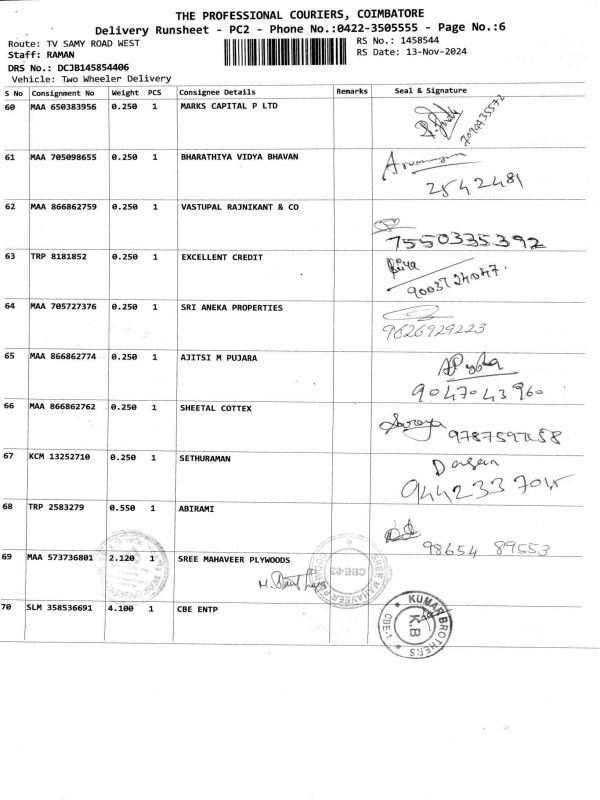 THE PROFESSIONAL COURIERS, COIMBATORE
Delivery Runsheet - PC2 - Phone No.:0422-3505555 - Page No.:6
Route: TV SAMY ROAD WEST RS No.: 1458544
Staff: RAMAN RS Date: 13-Nov-2024
DRS No.: DCJB145854406
Vehicle: Two Wheeler Delivery
S No Consignment No Weight PCS Consignee Details Remarks Seal & Signature
60 MAA 650383956 0.250 1 MARKS CAPITAL P LTD
61 MAA 705098655 0.250 1 BHARATHIYA VIDYA BHAVAN
2542481
62 MAA 866862759 0.250 1 VASTUPAL RAJNIKANT & CO
7550335392
63 TRP 8181852 0.250 1 EXCELLENT CREDIT
9003724047.
64 MAA 705727376 0.250 1 SRI ANEKA PROPERTIES
9626929223
65 MAA 866862774 0.250 1 AJITSI M PUJARA
9047043960
66 MAA 866862762 0.250 1 SHEETAL COTTEX
67 KCM 13252710 0.250 1 SETHURAMAN
68 TRP 2583279 0.550 1 ABIRAMI
98654 89553
69 MAA 573736801 2.120 1 SREE MAHAVEER PLYWOODS
SREE MAHAVEER
CBE-03
70 SLM 358536691 4.100 1 CBE ENTP
KUMAR BROTHERS
K.B
CBE-1